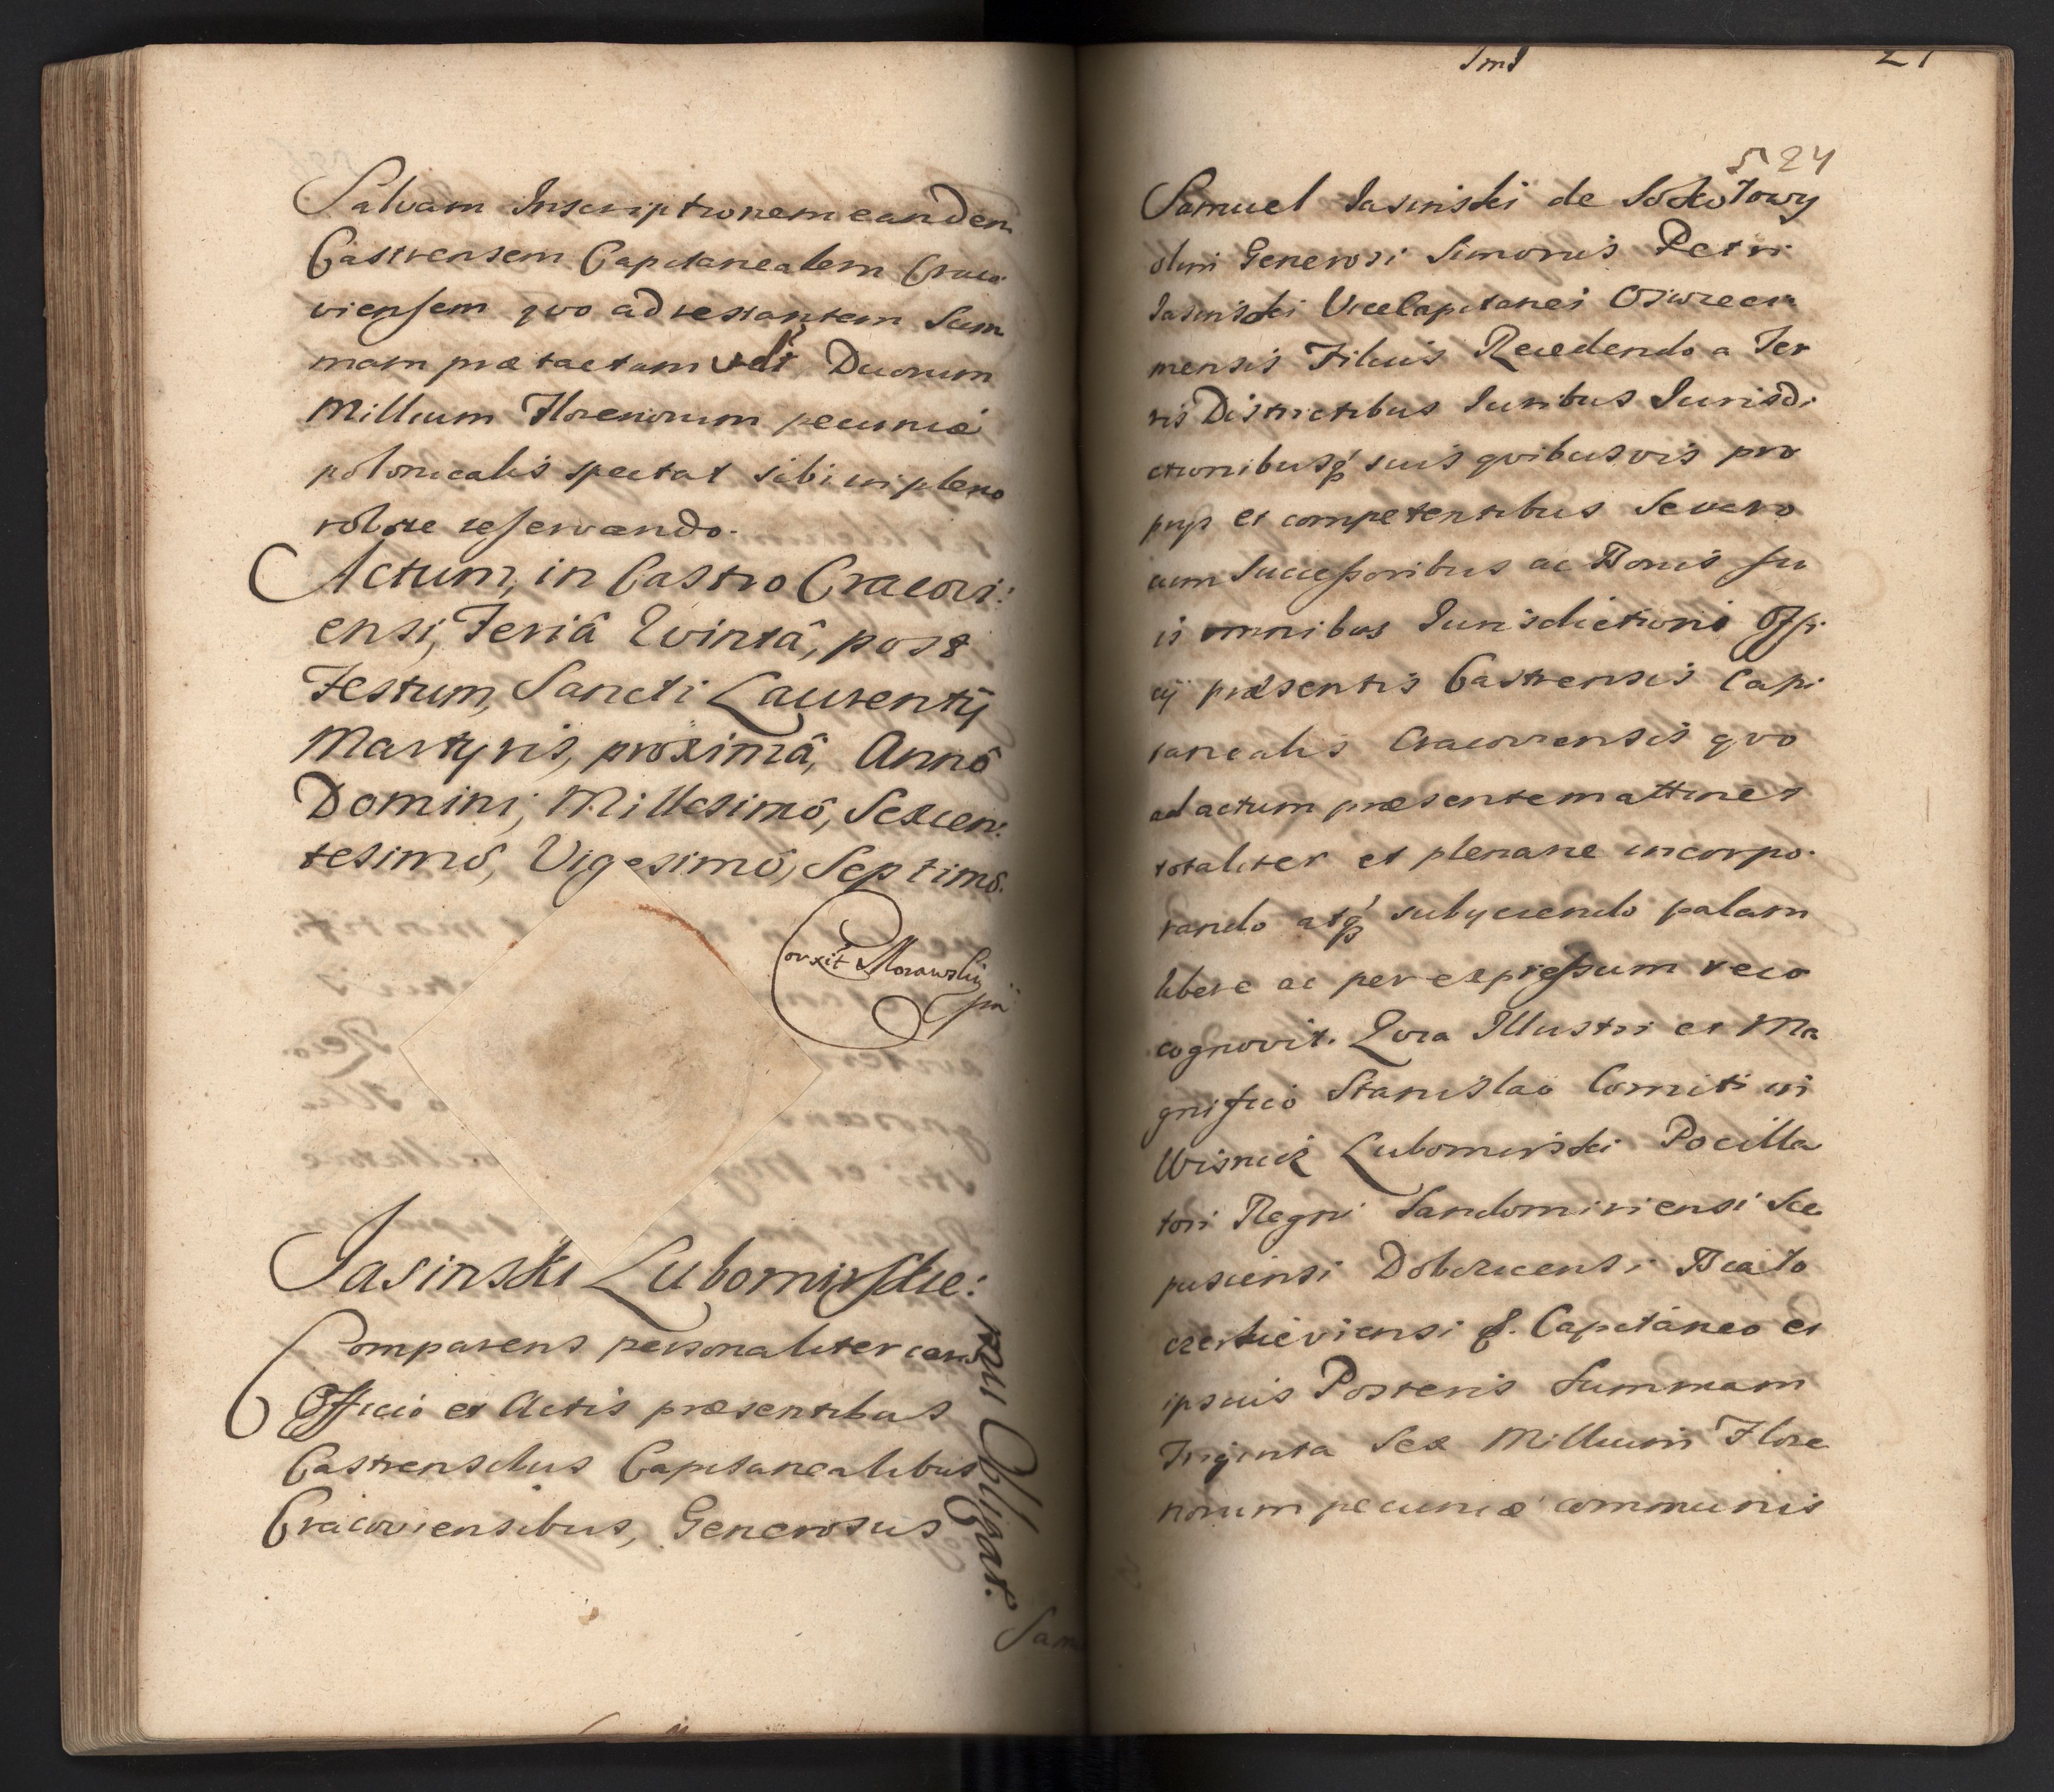 Salvam Inscriptionem eandem
Castrensem Capitanealem Craco
viensem qvo ad restantem Sum
mam præ tactam vdt Duorum
Millium Florenorum pecuniæ
polonicalis spectat sibi in pleno
robore reservando.
Actum, in Castro Cracovi:
ensi, Feriâ Qvintâ, post
Festum, Sancti Laurentÿ
Martyris, proximâ, Annô
Domini, Millesimô, Sexcen:
tesimô, Vigesimô, Septimô.
Corxit Morawski
pm
Jasinski Lubomirscie:
Comparens personaliter coram
Officio et Actis præsentibus
Castrensibus Capitanealibus
Cracoviensibus, Generosus
Obligat.
Sam
Ims
21
524
Samuel Jasinski de Sokołowy
olim Generosi Simonis Petri
Jasinski ViceCapitanei Oswieci
mensis Filius Recedendo a Ter
ris Districtibus Juribus Jurisdi
ctionibusq suis qvibusvis pro
prys et competentibus Se vero
cum Successoribus ac Bonis su
is omnibus Jurisdictioni Offi
cÿ præsentis Castrensis Capi
tanealis Cracoviensis qvo
ad actum præsentem attinet
totaliter et plenarie incorpo
rando atq subyciendo palam
libere ac per expressum reco
cognovit. Qvia Illustri et Ma
gnifico Stanislao Comiti in
Wisnicz Lubomirski Pocilla
tori Regni Sandomiriensi Sce
pusiensi Dobczicensi Biało
czerkieviensi &. Capitaneo et
ipsius Posteris Summam
Triginta Sex Millium Flore
norum pecuniæ communis